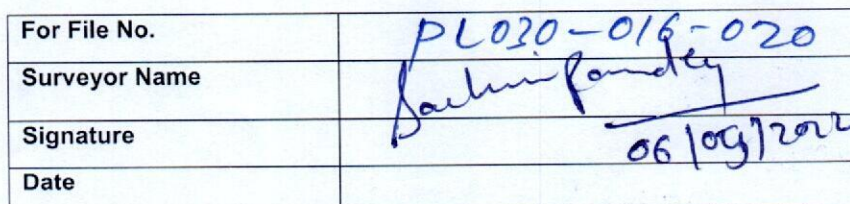 For File No. PL030-016-020
Surveyor Name Sachin Pandey
Signature
06/09/2022
Date